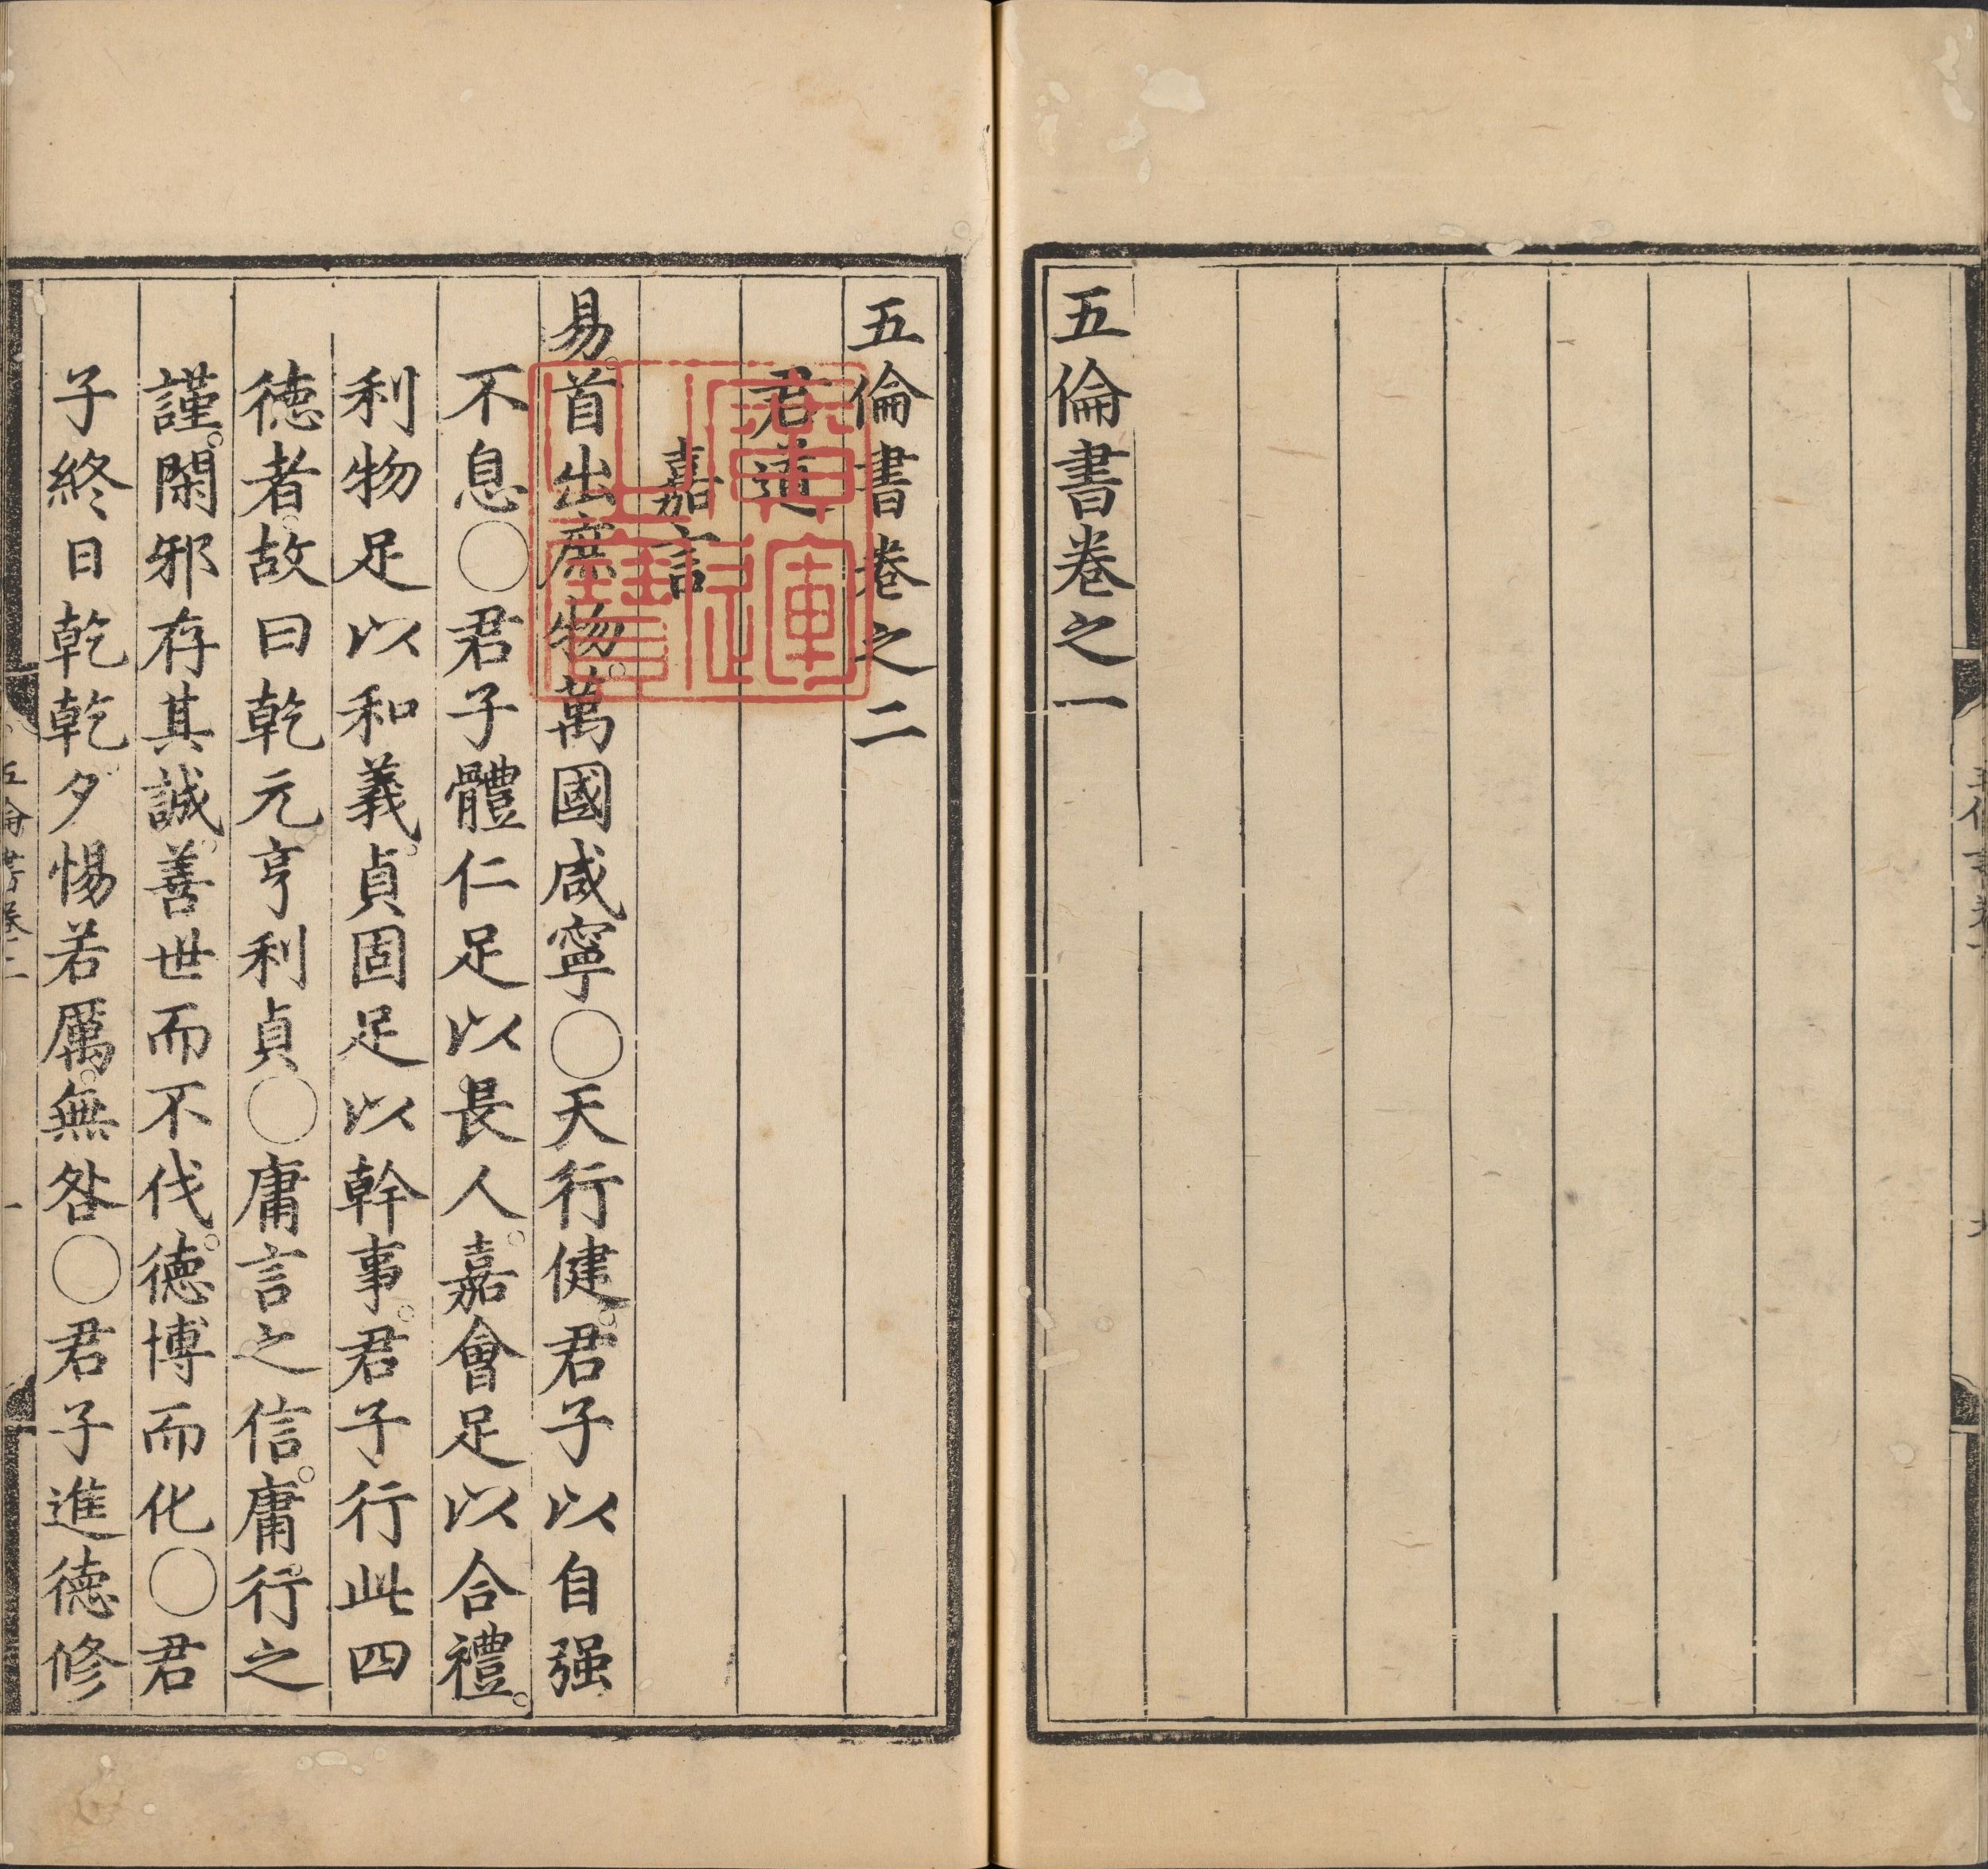 五倫書卷之一
五倫書卷之二
君道
嘉言
易。首出庶物。萬國咸寧○天行健。君子以自强
不息○君子體仁足以長人。嘉會足以合禮。
利物足以和義。貞固足以幹事。君子行此四
德者。故曰乾元亨利貞○庸言之信。庸行之
謹。閑邪存其誠。善世而不伐。德博而化○君
子終日乾乾。夕惕若厲。無咎○君子進德修
五倫書卷二
一